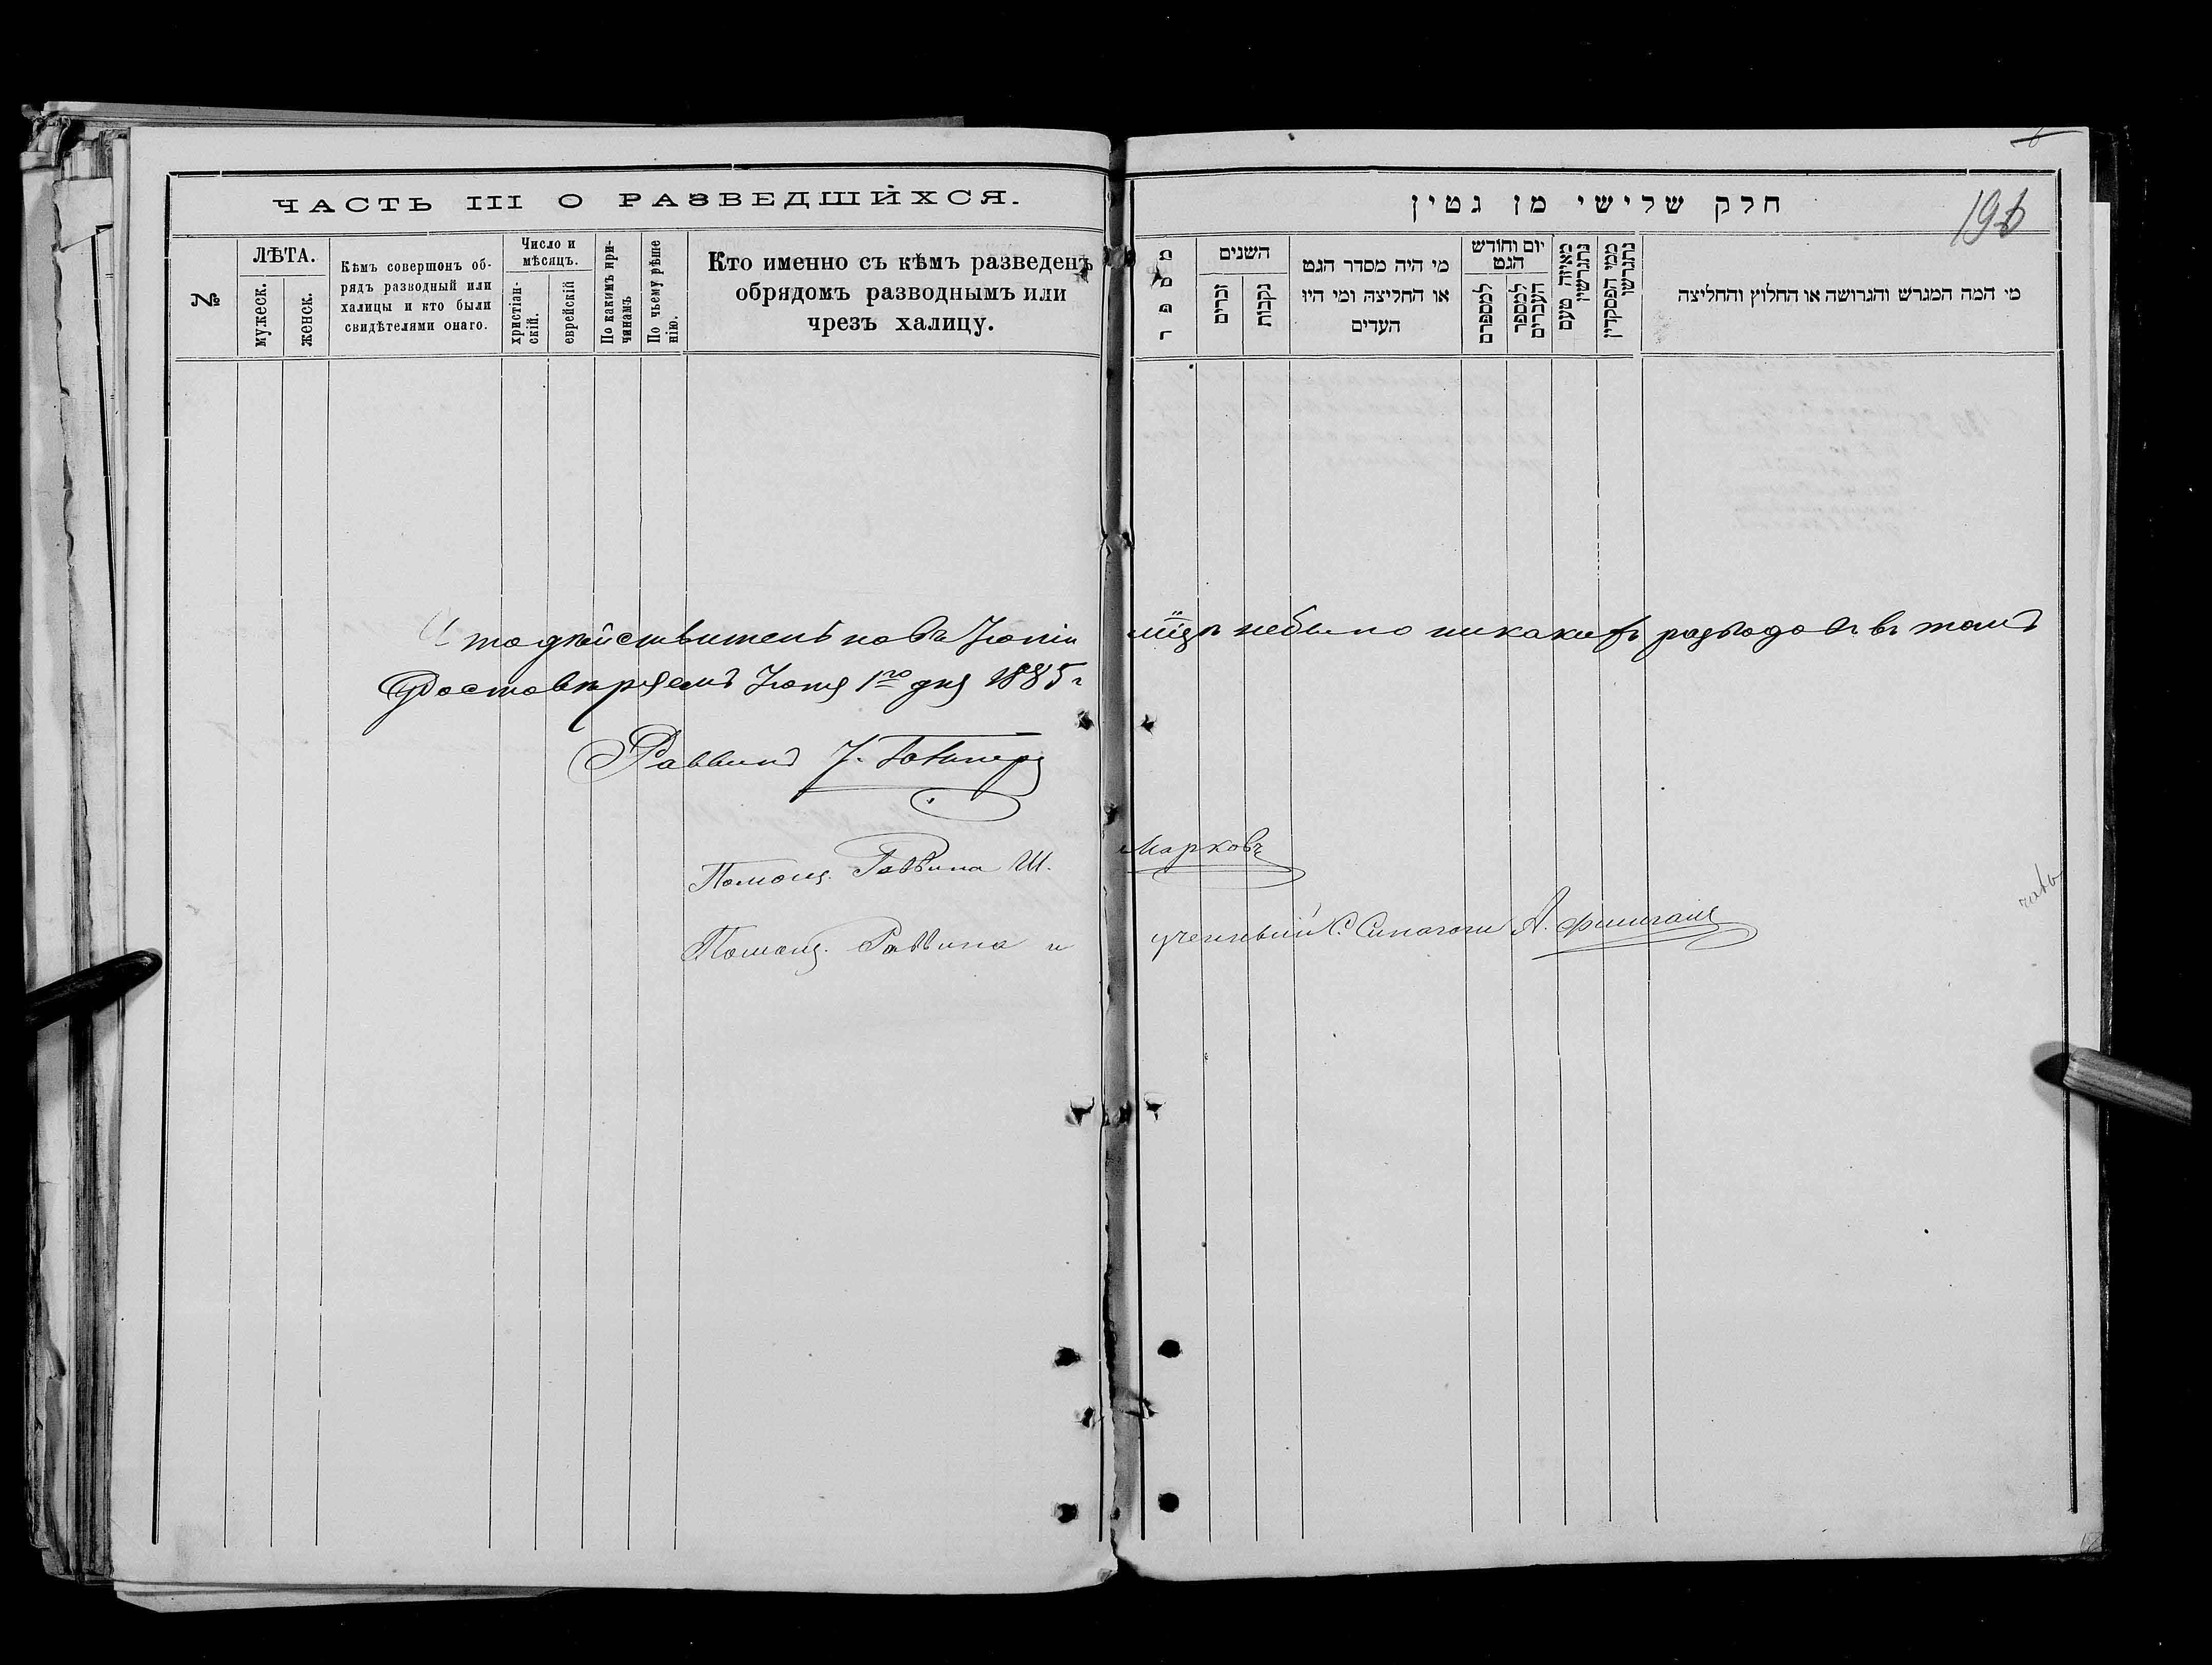 ЧАСТЬ III О РАЗВЕДШИЙХСЯ.
№
ЛѢТА.
мужеск.
женск.
Кѣмъ совершонъ об-
рядъ разводный или
халицы и кто были
свидѣтелями онаго.
Число и
мѣсяцъ.
христіан-
скій.
еврейскій
По какимъ при-
чинамъ
По чьему рѣше
нію.
Кто именно съ кѣмъ разведенъ
обрядомъ разводнымъ или
чрезъ халицу.
חלק שלישי מן גטין
196
מספר
השנים
זכרים
נקבות
מי היה מסדר הגט
או החליצה ומי היו
העדים
יום וחודש
הגט
למספרם
למספר
העברים
מאיזה טעם
נתגרשו
מפי הפסקדין
נתגרשו
מי המה המגרש והגרושה או החלוץ והחליצה
Что дѣйствительно въ Іюнѣ мцѣ небыло никакихъ разводовъ въ томъ
Достовѣряемъ Іюня 1го дня 1885 г
Раввинъ
Помощ. Раввина Ш. Марковъ
Помощ. Раввина и ученный С. Синагоги А.